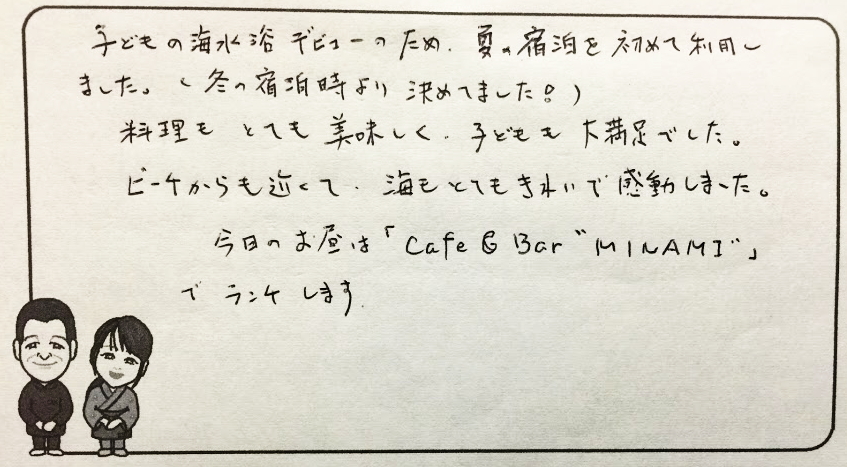 子どもの海水浴デビューのため、夏の宿泊を初めて利用し
ました。(冬の宿泊時より決めてました!)
料理もとても美味しく、子どもも大満足でした。
ビーチからも近くて、海もとてもきれいで感動しました。
今日のお昼は「Cafe & Bar "MINAMI"」
でランチします。